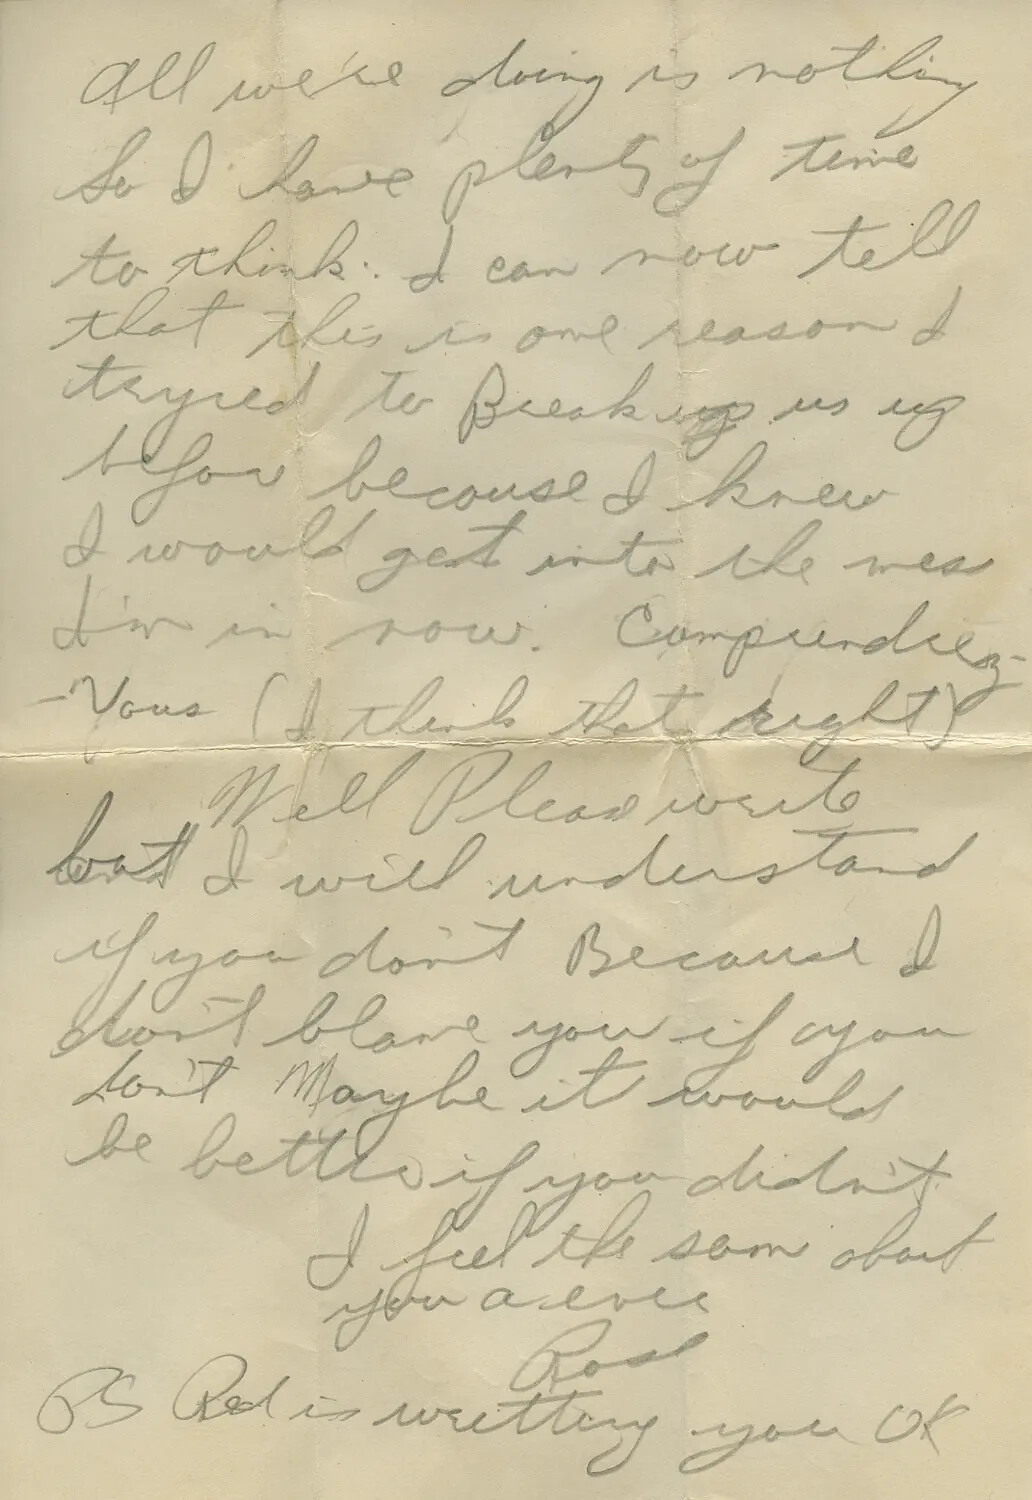 All we're doing is nothing
So I have plenty of time
to think. I can now tell
that this is one reason I
tryred to Break us up
befor because I knew
I would get into the mess
I'm in now. Compurndrez-
-Vous (I think that right)
Well Please write
but I will understand
if you don't Because I
don't blame you if you
don't Maybe it would
be better if you didn't
I feel the same about
you a ever
PS Red is writting you OK